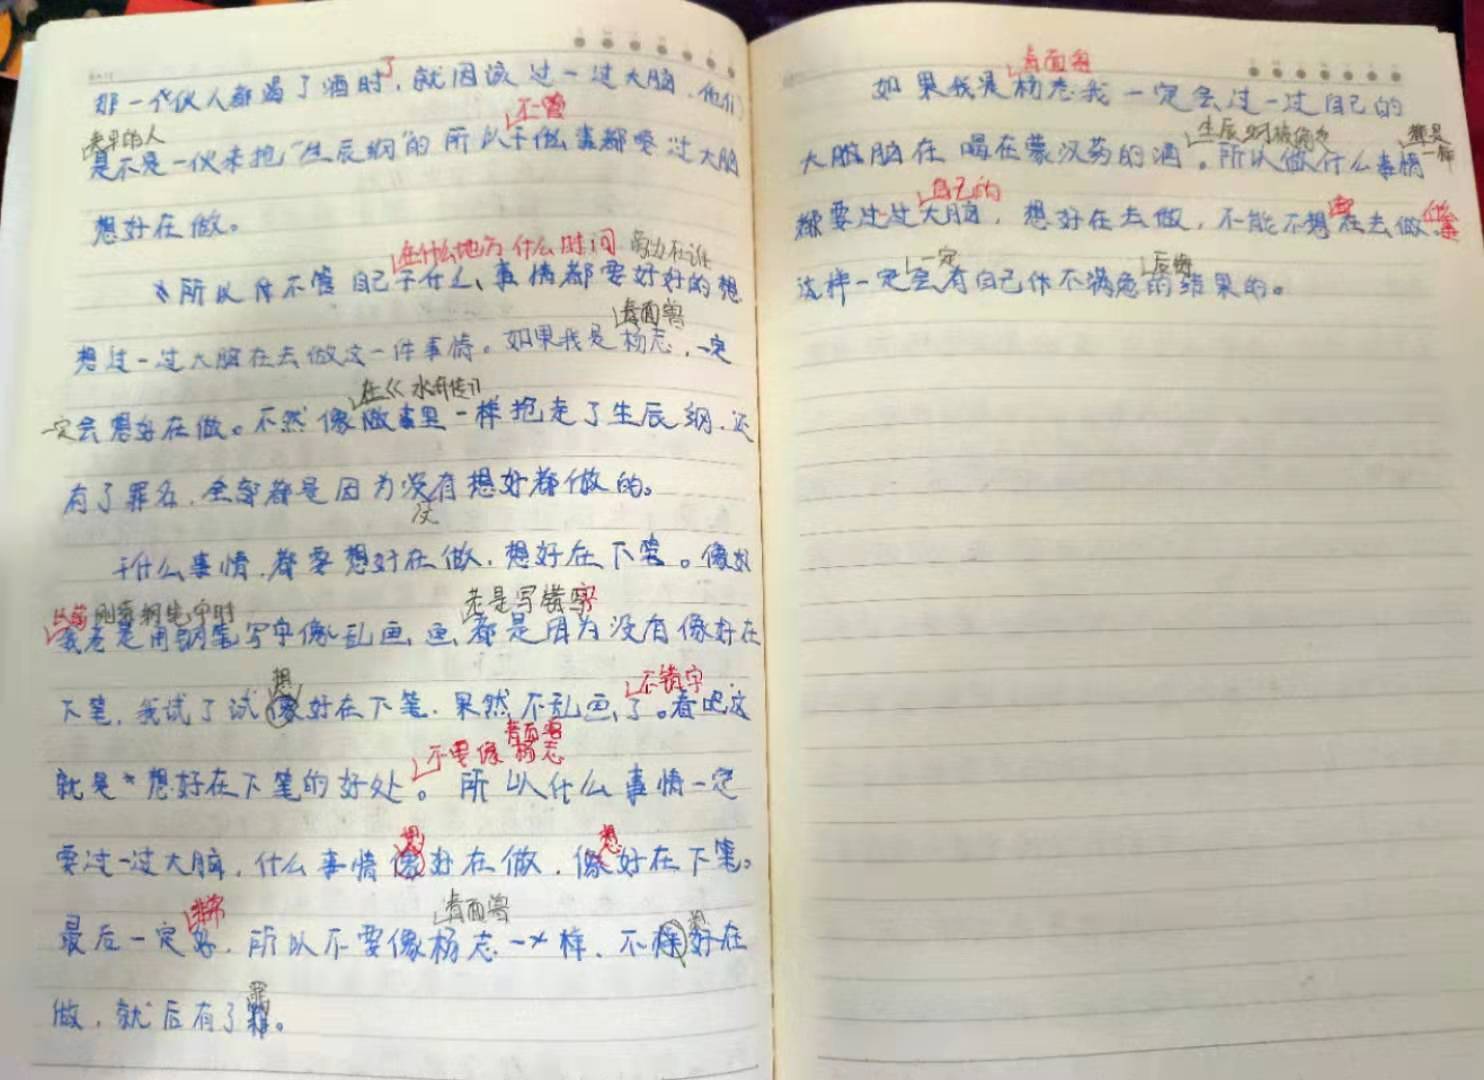 了
那一代伙人都喝了酒时，就因该过一过大脑，他们
不管
卖早的人
是不是一伙来抢“生辰纲”的所以干似事都要过大脑
想好在做。
在什么地方什么时间旁边在谁
所以你不管自己干什么事情都要好好的想
青面兽
想过一过大脑在去做这一件事情。如果我是杨志，一定
在《水浒传》
一定会想好在做。不然像故事里一样抢走了生辰纲，还
有了罪名，全部都是因为没有想好都做的。
没
干什么事情，都要想好在做，想好在下笔。像
以前刚写钢笔字时
老是写错字
我老是用钢笔写字像乱画，画，都是因为没有像好在
想
不错字
下笔，我试了试像好在下笔，果然不乱画了。看吧这
不要像青面兽杨志
就是想好在下笔的好处。所以什么事情一定
想 想
要过一过大脑，什么事情像好在做，像好在下笔。
非常
青面兽
想
最后一定好，所以不要像杨志一样，不像好在
罪
做，就后有了罪。
青面兽
如果我是杨志我一定会过一过自己的
生辰纲被偷走
都是一样
大脑脑在喝在蒙汉药的酒。所以做什么事情
自己的
都要过过大脑，想好在去做，不能不想在去做
一定
后悔
这样一定会有自己作不满意的结果的。